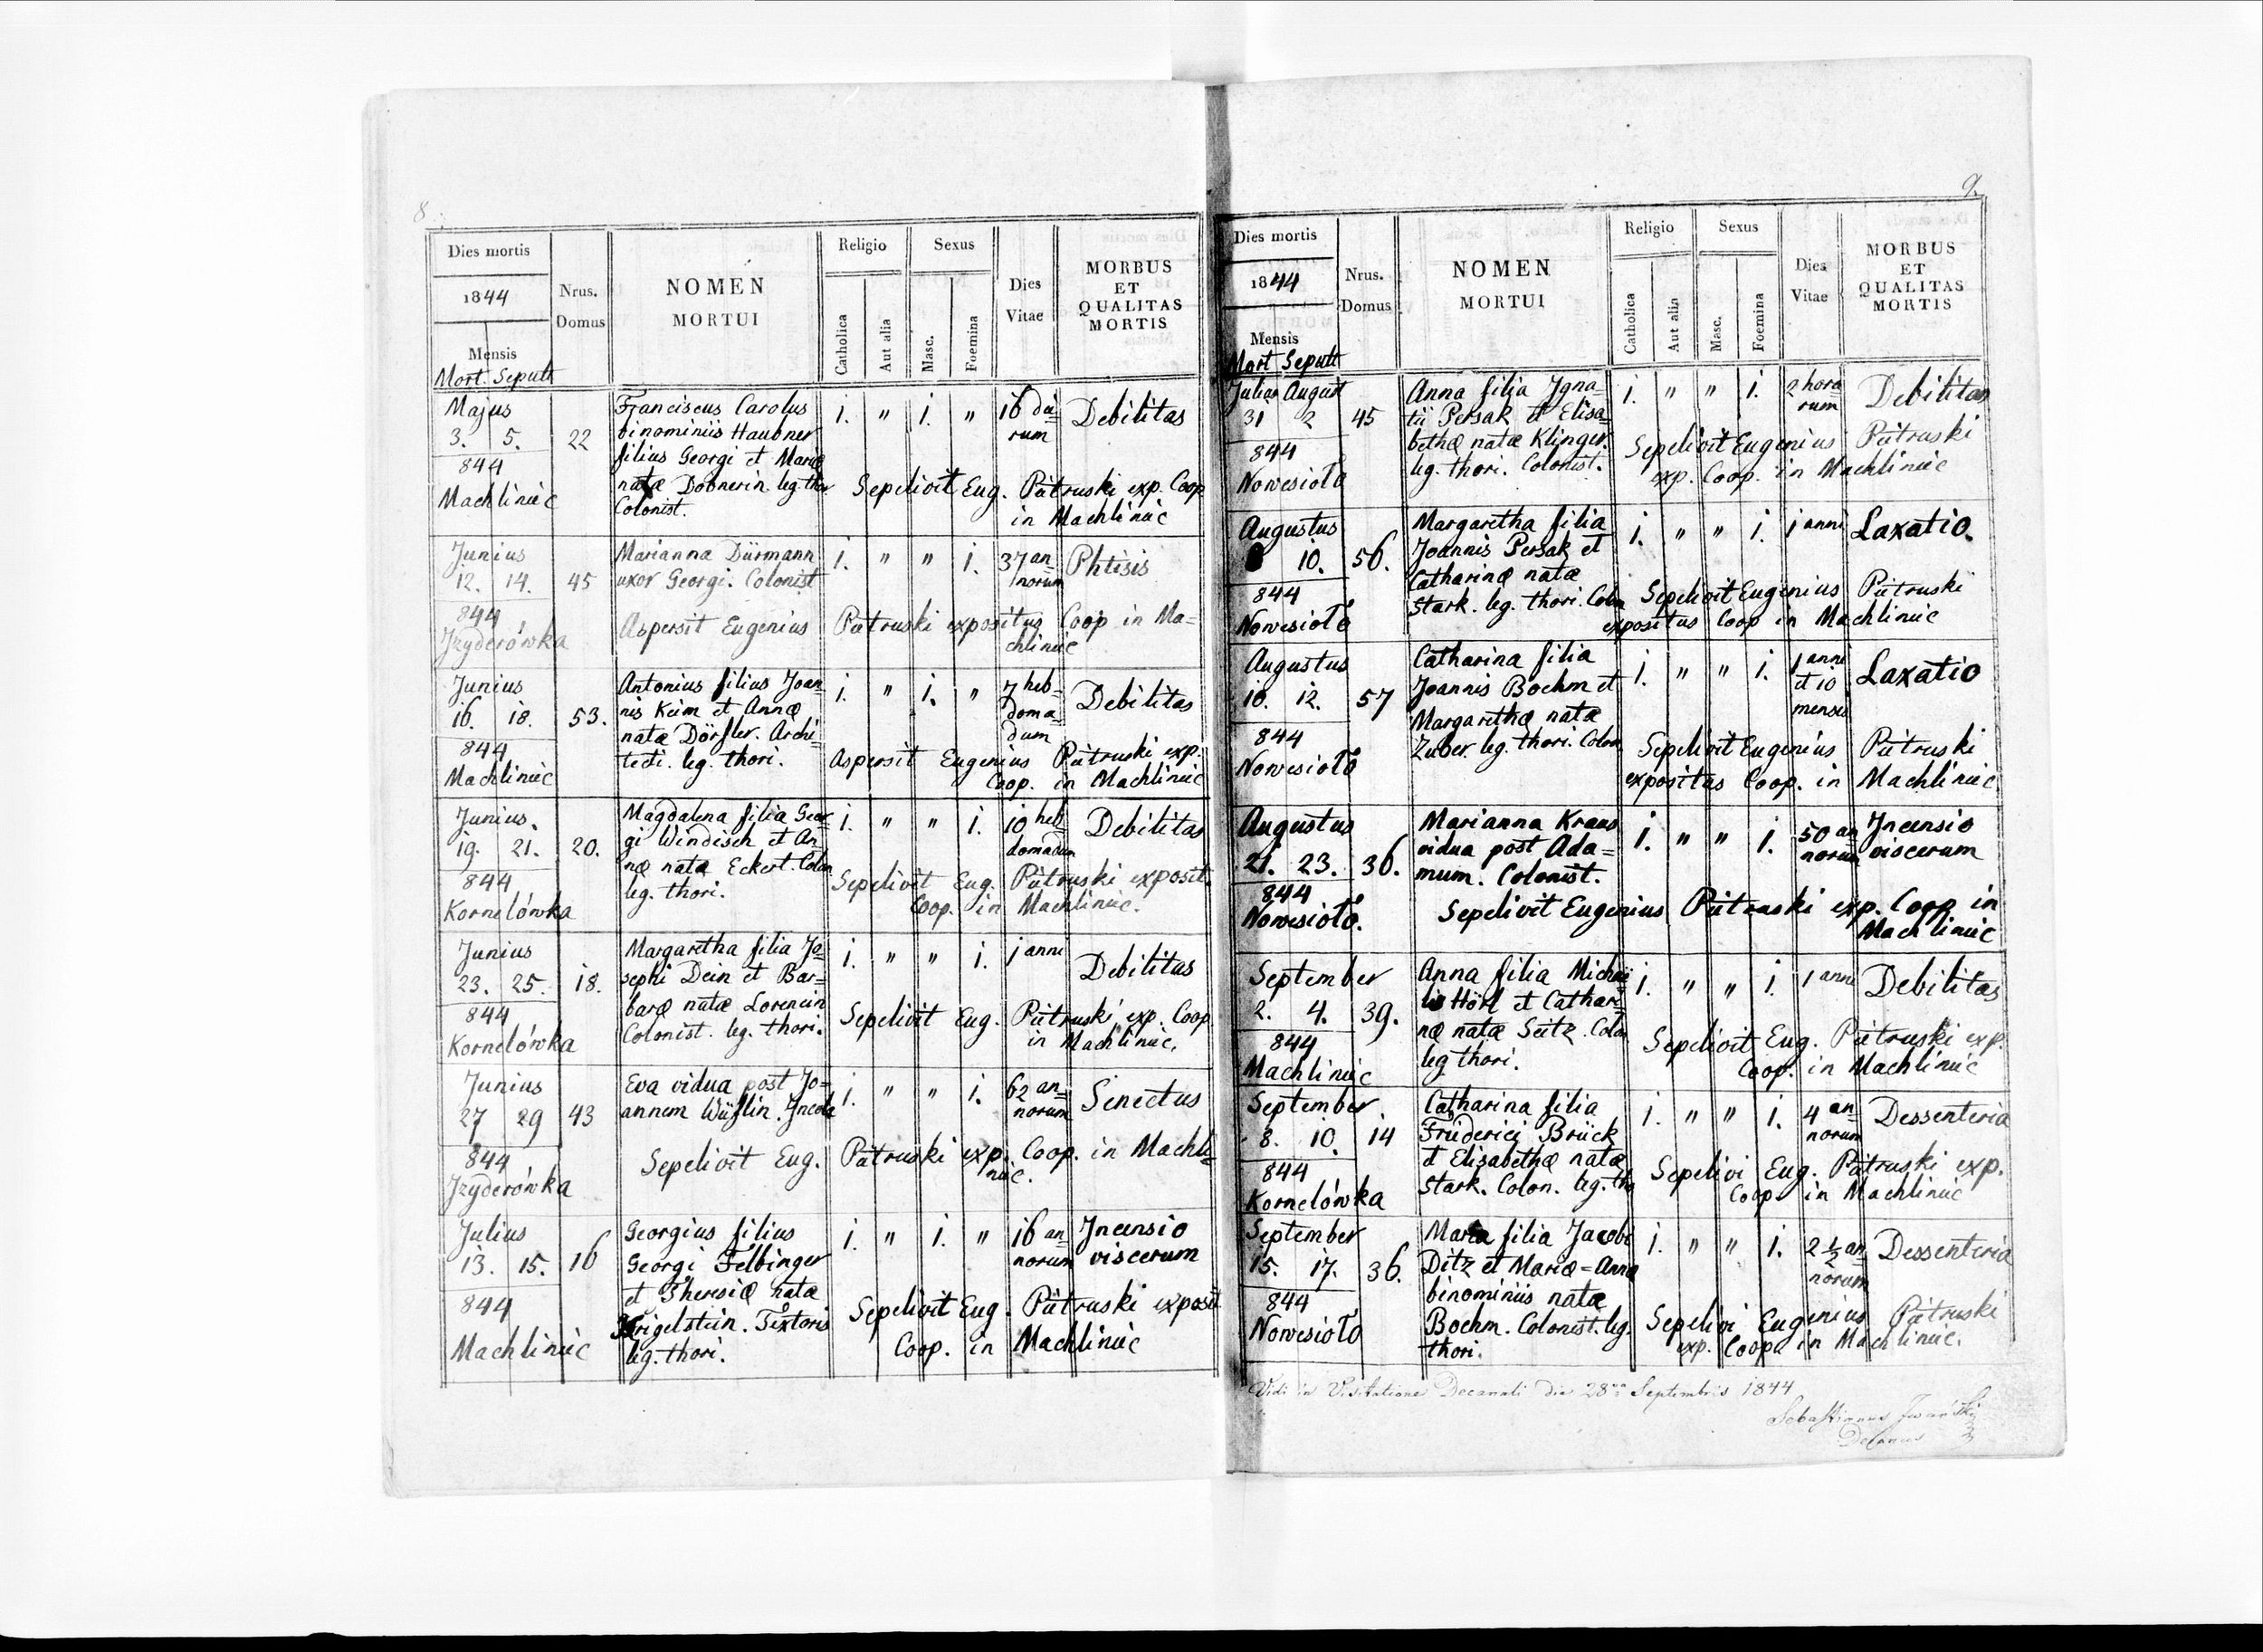 8
Dies mortis
1844
Mensis
Mort. Sepult
Nrus. Domus
NOMEN
MORTUI
Religio
Catholica
Aut alia
Sexus
Masc.
Foemina
Dies
Vitae
MORBUS
ET
QUALITAS
MORTIS
Majus
3. 5. 22
844
Machliniec
Franciscus Carolus
binominiis Haubner
filius Georgi et Mariæ
natæ Dobnerin leg. thor
Colonist.
1. " 1. " 16 die=
rum
Debilitas
Sepelivit Eug. Pietruski exp. Coop
in Machliniec
Junius
12. 14. 45
844
Izyderówka
Marianna Dürmann
uxor Georgi. Colonist
1. " " 1. 37 an=
norum
Phtisis
Aspersit Eugenius Pietruski expositus Coop in Ma=
chliniec
Junius
16. 18. 53.
844
Machliniec
Antonius filius Joan=
nis Keim et Annæ
natæ Dörfler. Archi=
tecti. leg. thori.
1. " 1. " 7 heb=
doma=
dum
Debilitas
Aspersit Eugenius Pietruski exp.
Coop. in Machliniec
Junius.
19. 21. 20.
844
Kornelówka
Magdalena filia Geor=
gi Windisch et An=
næ natæ Eckert. Colon
leg. thori.
1. " " 1. 10 heb=
domadum
Debilitas
Sepelivit Eug. Pietruski exposit.
Coop. in Machliniec.
Junius
23. 25. 18.
844
Kornelówka
Margaretha filia Jo=
sephi Dein et Bar=
baræ natæ Lorencin
Colonist. leg. thori.
1. " " 1. 1 anni
Debilitas
Sepelivit Eug. Pietruski exp. Coop
in Machliniec.
Junius
27 29 43
844
Izyderówka
Eva vidua post Jo=
annem Wüflin. Incola
1. " " 1. 62 an=
norum
Senectus
Sepelivit Eug. Pietruski exp. Coop. in Machli=
niec.
Julius
13. 15. 16
844
Machliniec
Georgius filius
Georgi Felbinger
et Theresiæ natæ
Krigelstein. Textoris
leg. thori.
1. " 1. " 16 an=
norum
Incensio
viscerum
Sepelivit Eug. Pietruski exposit
Coop. in Machliniec
9.
Dies mortis
1844
Mensis
Mort Sepult
Nrus.
Domus
NOMEN
MORTUI
Religio
Catholica
Aut alia
Sexus
Masc.
Foemina
Dies
Vitae
MORBUS
ET
QUALITAS
MORTIS
Julius August
31 2 45
844
Nowesioło
Anna filia Igna=
tii Persak et Elisa=
bethæ natæ Klinger.
leg. thori. Colonist.
1. " " 1. 2 hora
rum
Debilitas
Sepelivit Eugenius Pietruski
exp. Coop. in Machliniec
Augustus
10. 56.
844
Nowesioło
Margaretha filia
Joannis Persak et
Catharinæ natæ
Stark. leg. thori. Colon
1. " " 1. 1 anni
Laxatio.
Sepelivit Eugenius Pietruski
expositus Coop in Machliniec
Augustus
10. 12. 57
844
Nowesioło
Catharina filia
Joannis Boehm et
Margarethæ natæ
Zuber leg. thori. Colon
1. " " 1. 1 anni
et 10
mensis
Laxatio
Sepelivit Eugenius Pietruski
expositus Coop. in Machliniec
Augustus
21. 23. 36.
844
Nowesioło.
Marianna Kraus
vidua post Ada=
mum. Colonist.
1. " " 1. 50 an
norum
Incensio
viscerum
Sepelivit Eugenius Pietruski exp. Coop in
Machliniec
September
2. 4. 39.
844
Machliniec
Anna filia Michae
lis Hörl et Cathari=
næ natæ Seitz. Colon
leg thori.
1. " " 1. 1 anni
Debilitas
Sepelivit Eug. Pietruski exp.
Coop. in Machliniec
September.
8. 10. 14
844
Kornelówka
Catharina filia
Friederici Brück
et Elisabethæ natæ
Stark. Colon. leg. tho
1. " " 1. 4 an=
norum
Dessenteria
Sepelivi Eug. Pietruski exp.
Coop. in Machliniec
September
15. 17. 36.
844
Nowesioło
Maria filia Jacobi
Ditz et Mariæ=Annæ
binominiis natæ
Boehm. Colonist. leg.
thori.
1. " " 1. 2½ an
norum
Dessenteria
Sepelivi Eugenius Pietruski
exp. Coop in Machliniec.
Vidi in Visitatione Decanali die 28va Septembris 1844
Sebastianus Iwański
Decanus